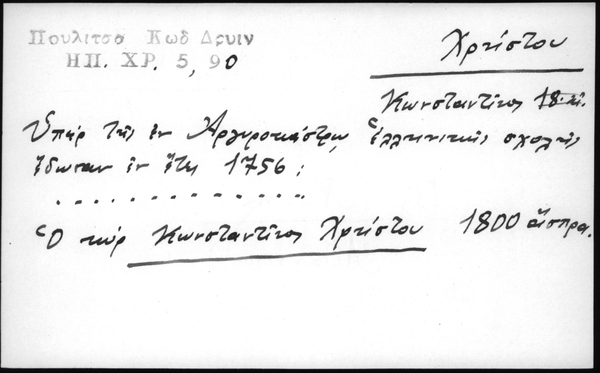 Πουλιτσα Κωδ Δρυιν
ΗΠ. ΧΡ. 5, 90
Χρήστου
Κωνσταντῖνος 18. αἰ.
Ὑπὲρ τῆς ἐν Ἀργυροκάστρῳ Ἑλληνικῆς σχολῆς
ἔδωκαν ἐν ἔτει 1756:
. . . . . . . . . . . . . .
Ὁ κὺρ Κωνσταντῖνος Χρήστου 1800 ἄσπρα.